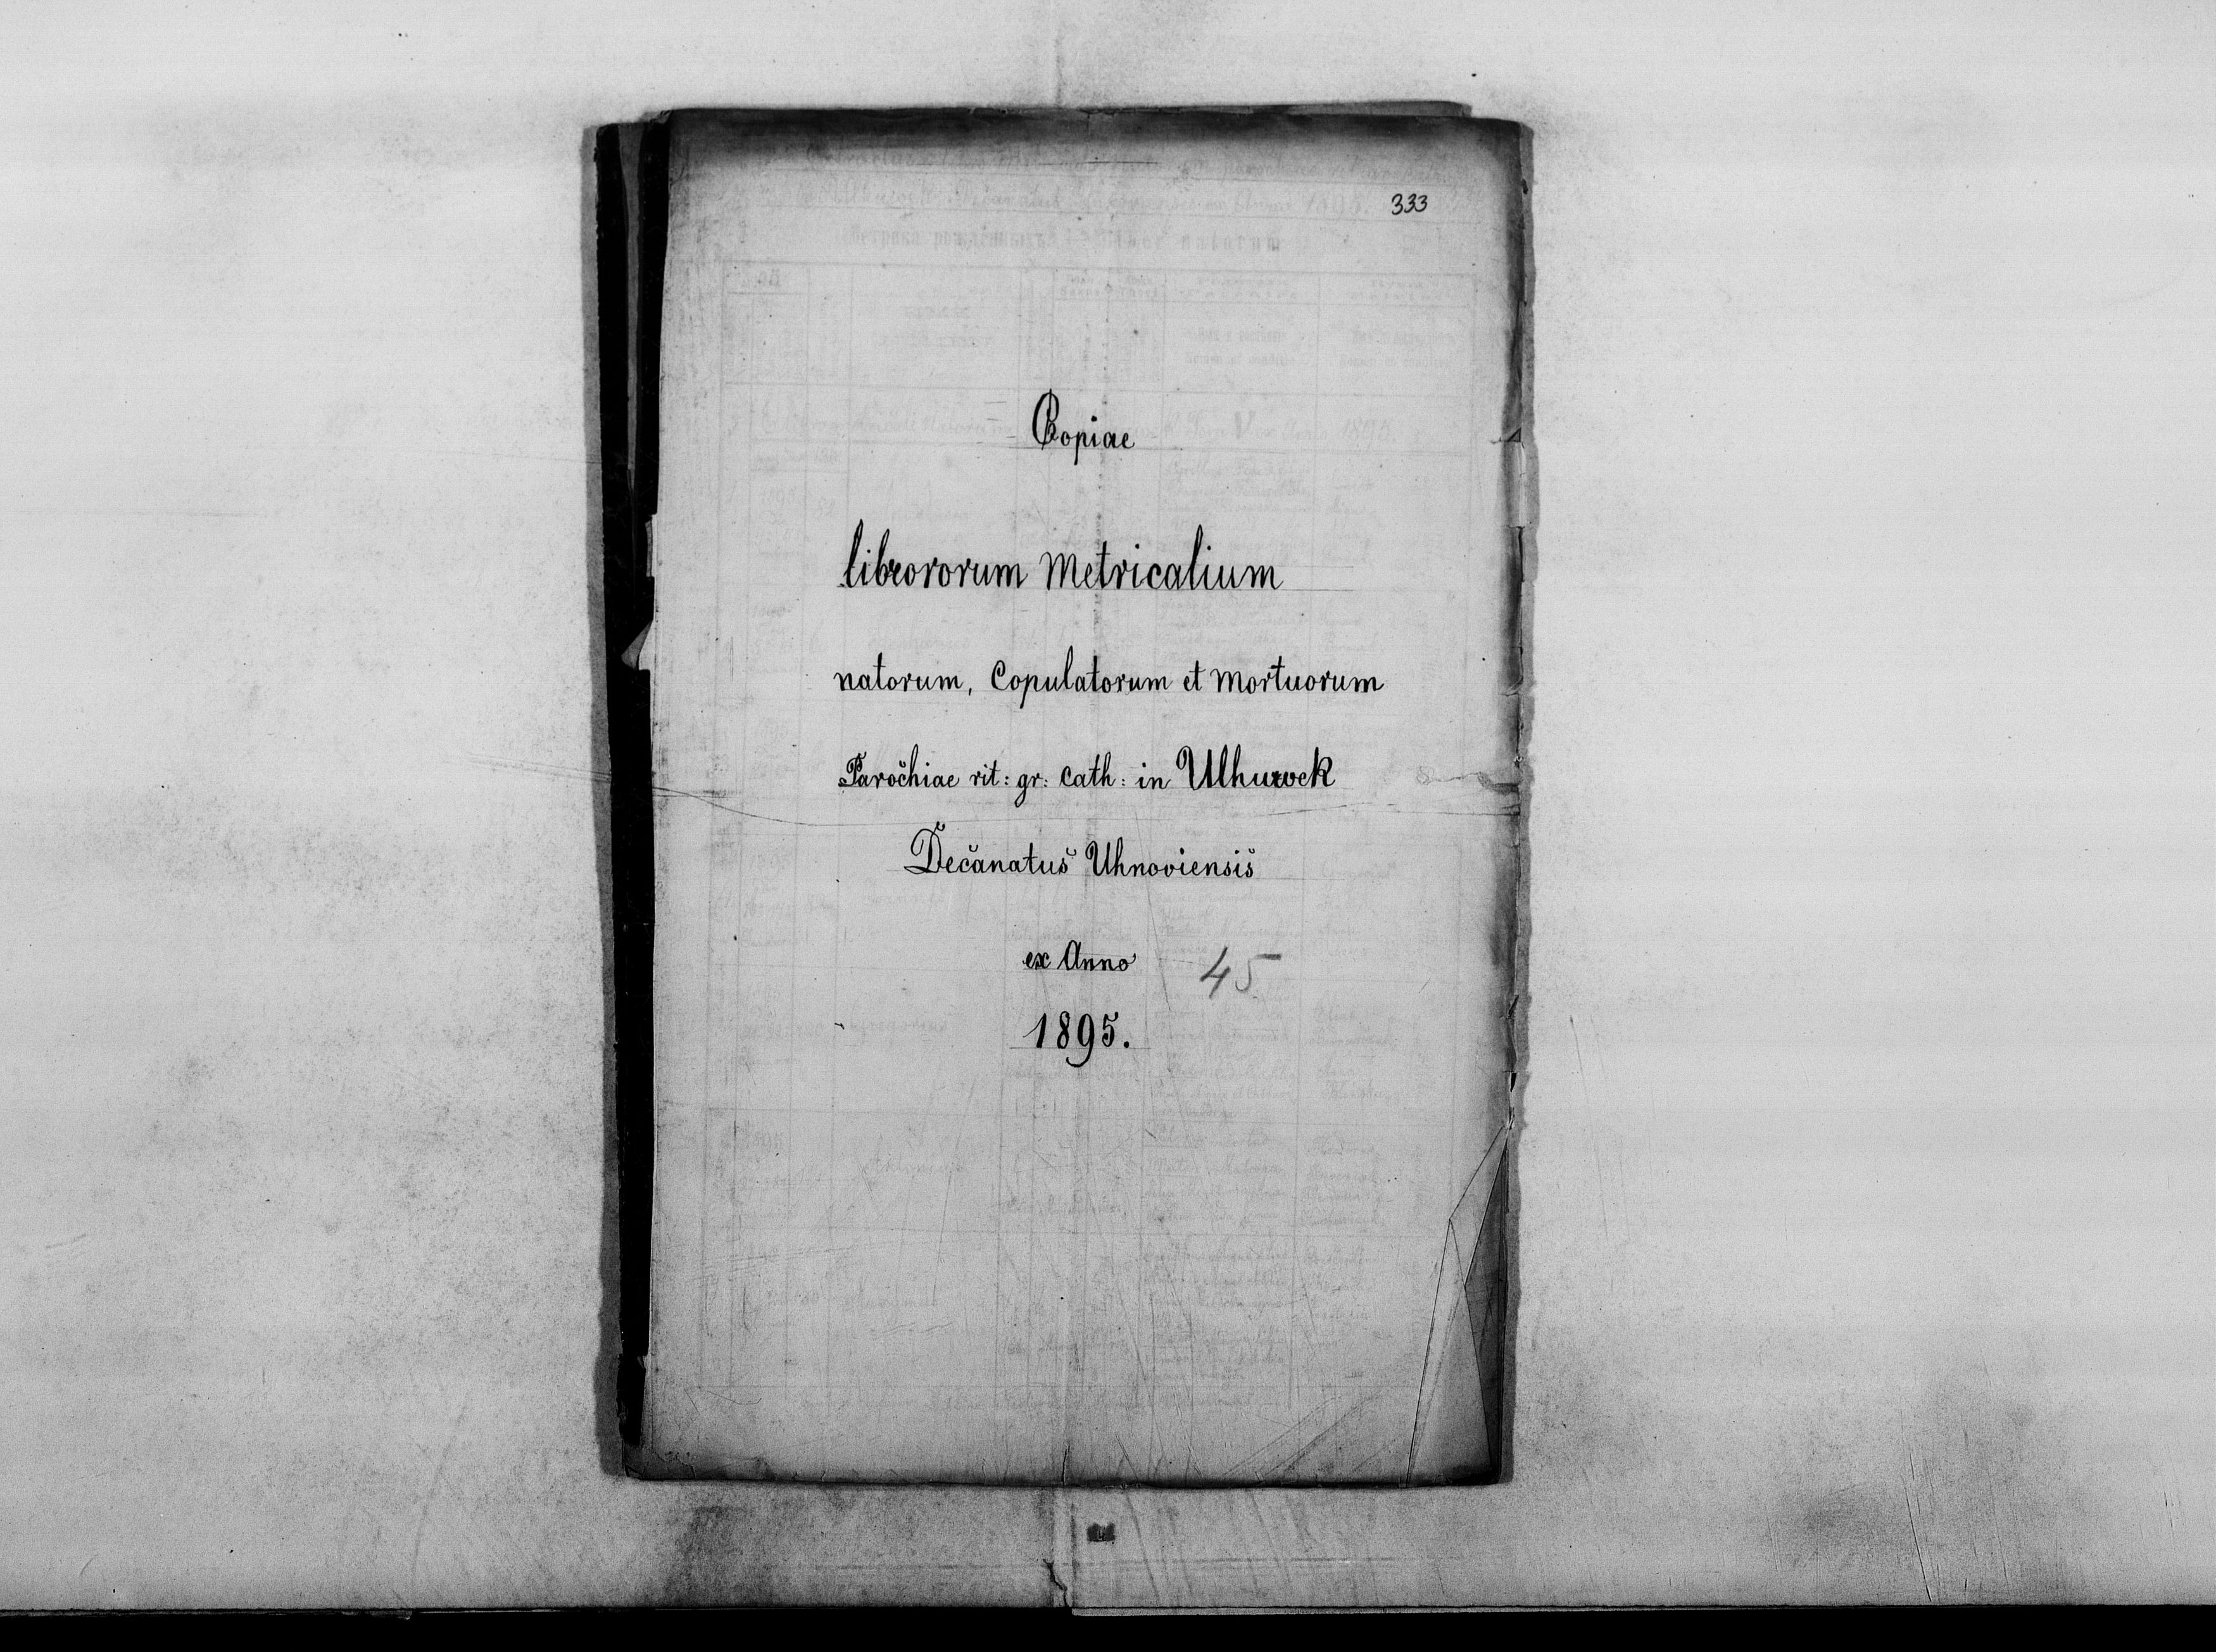 333
Copiae
librororum Metricalium
natorum, Copulatorum et Mortuorum
Parochiae rit: gr: Cath: in Ulhuwek
Decanatus Uhnoviensis
ex Anno
45
1895.